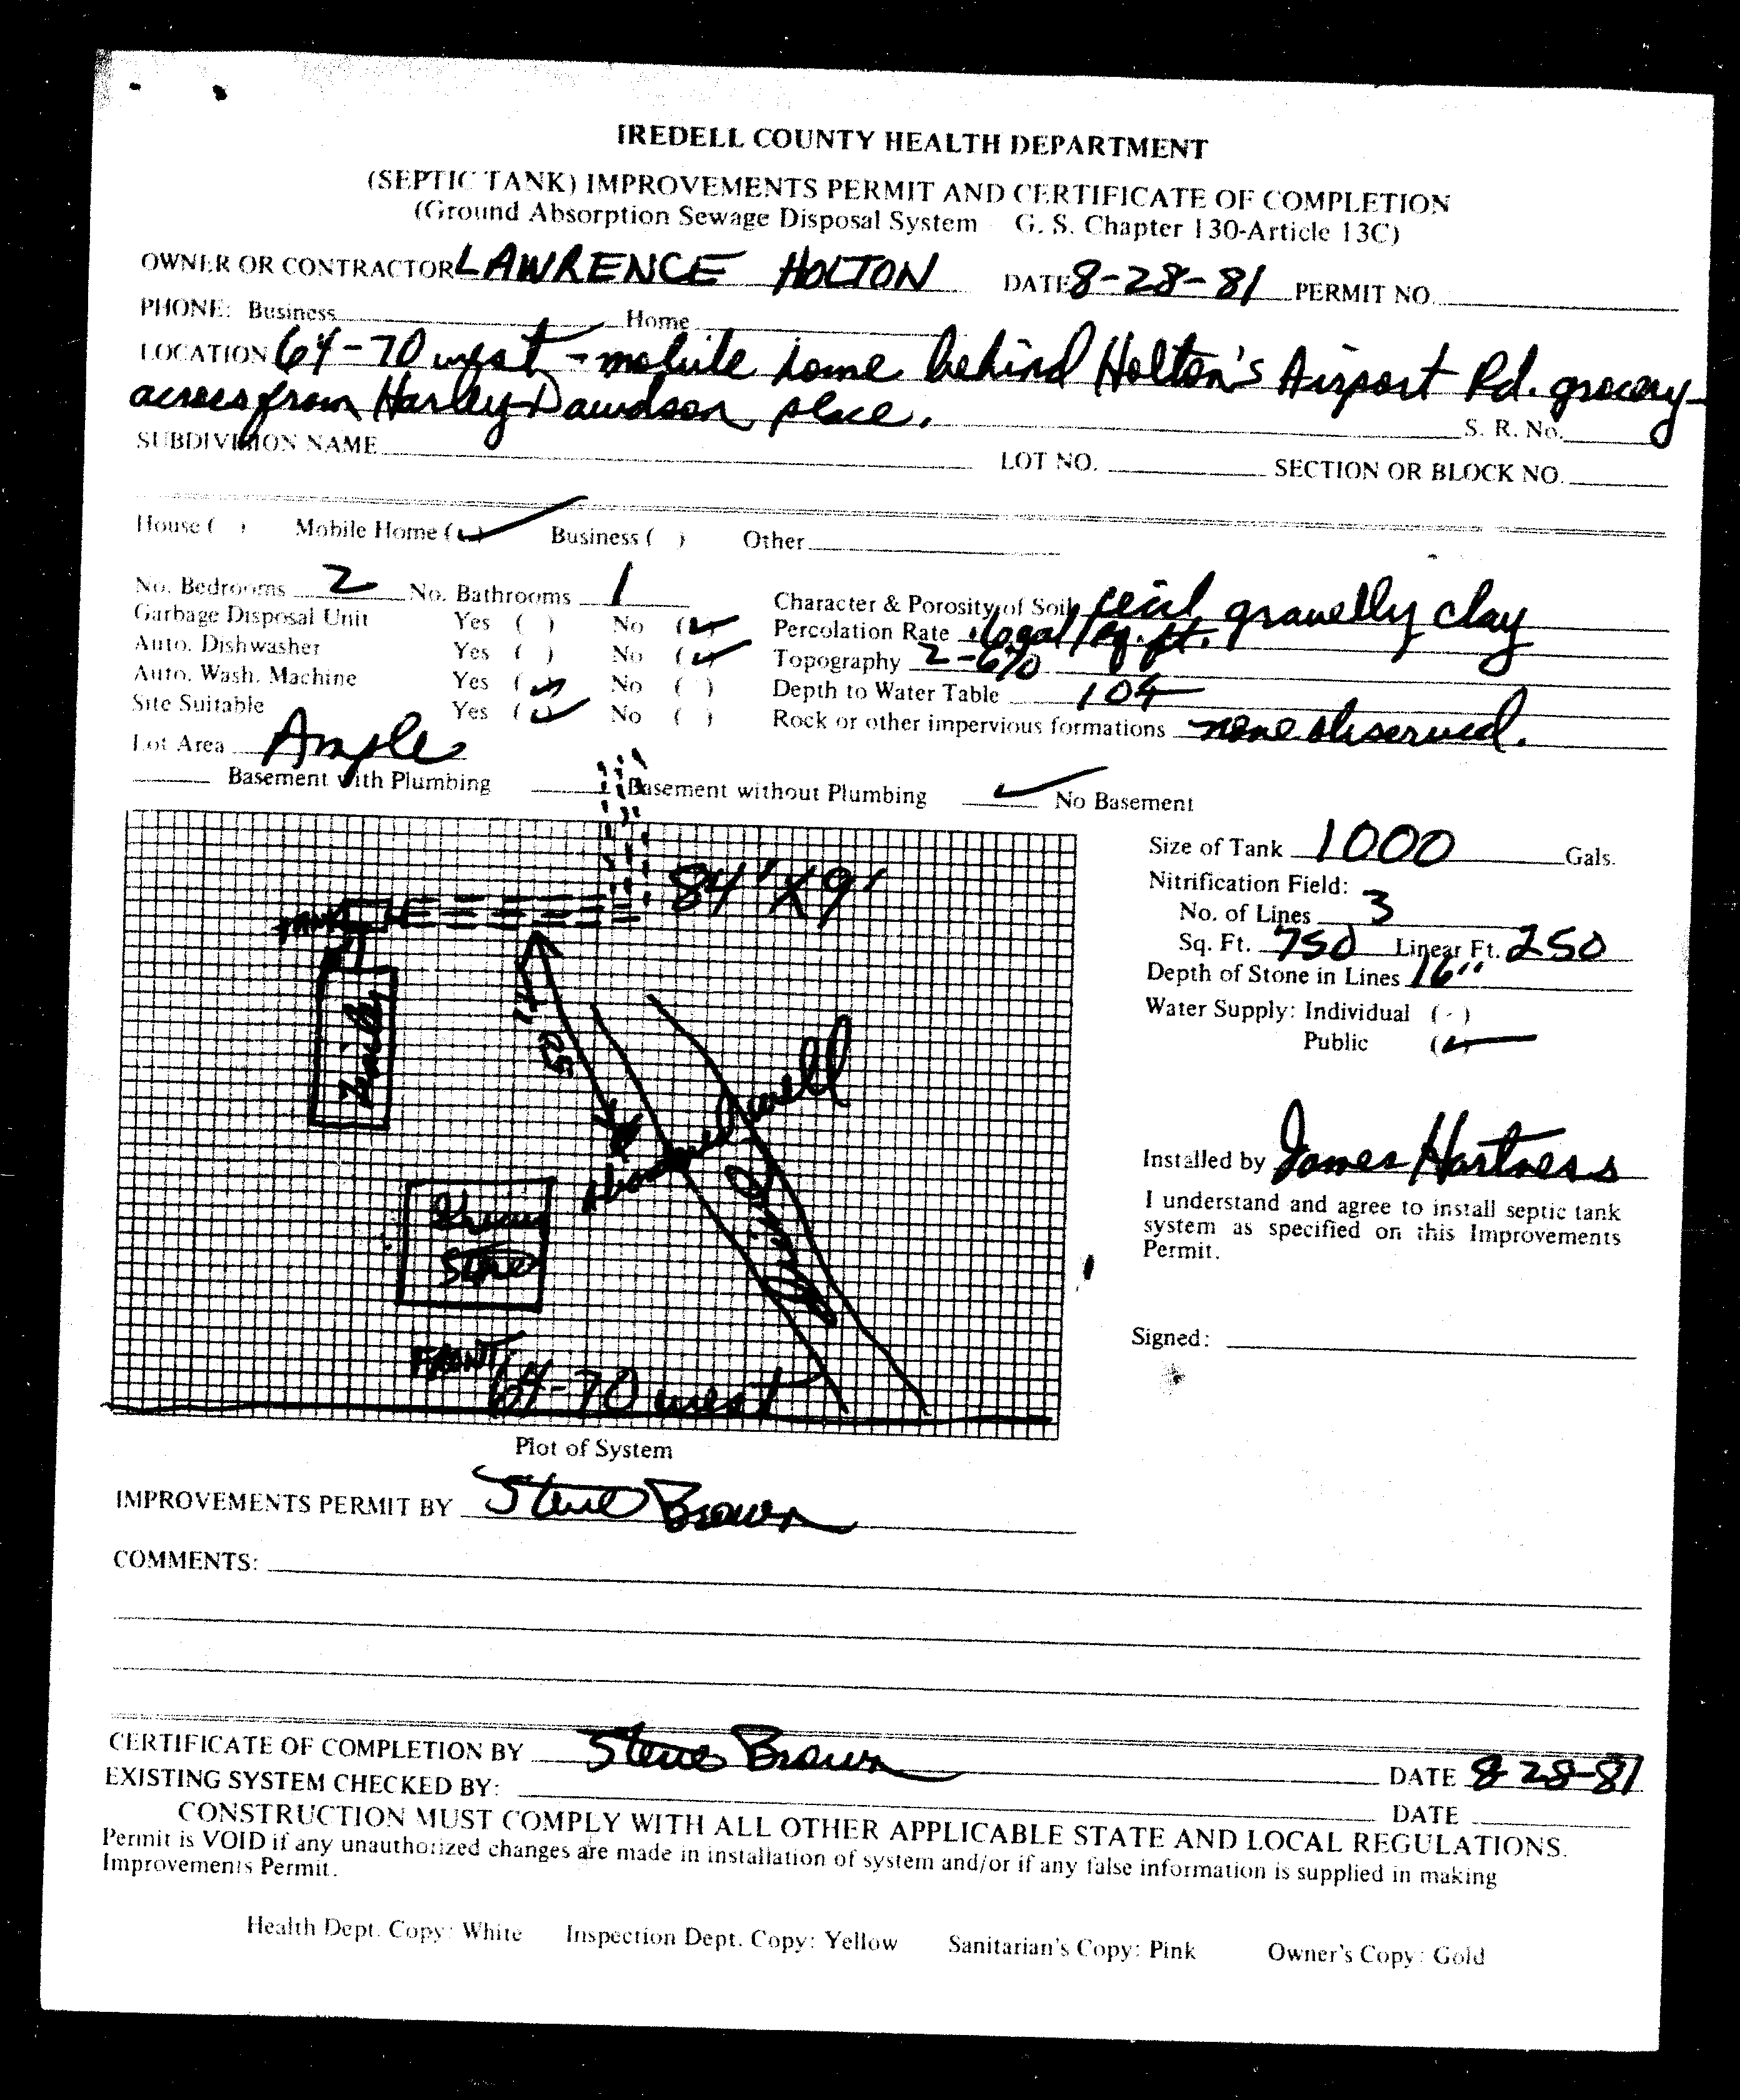 IREDELL COUNTY HEALTH DEPARTMENT
(SEPTIC TANK) IMPROVEMENTS PERMIT AND CERTIFICATE OF COMPLETION
(Ground Absorption Sewage Disposal System G. S. Chapter 130-Article 13C)
OWNER OR CONTRACTOR LAWRENCE HOLTON DATE 8-28-81 PERMIT NO.
PHONE: Business Home
LOCATION 64-70 west - mobile home behind Holton's Airport Rd. grocery-
across from Harley Davidson place.
S. R. No.
SUBDIVISION NAME LOT NO. SECTION OR BLOCK NO.
House ( ) Mobile Home (✓) Business ( ) Other
No. Bedrooms 2 No. Bathrooms 1
Garbage Disposal Unit Yes ( ) No (✓)
Auto. Dishwasher Yes ( ) No (✓)
Auto. Wash. Machine Yes (✓) No ( )
Site Suitable Yes (✓) No ( )
Lot Area Ample
Character & Porosity of Soil Cecil gravelly clay
Percolation Rate gal/sq. ft.
Topography 2-6%
Depth to Water Table
Rock or other impervious formations none observed.
Basement with Plumbing Basement without Plumbing ✓ No Basement
84' X 9'
TANK
50
Abandoned well
Store
FRONT
64-70 west
Plot of System
Size of Tank 1000 Gals.
Nitrification Field:
No. of Lines 3
Sq. Ft. 750 Linear Ft. 250
Depth of Stone in Lines 16"
Water Supply: Individual ( )
Public (✓)
Installed by James Hartness
I understand and agree to install septic tank
system as specified on this Improvements
Permit.
Signed:
IMPROVEMENTS PERMIT BY Steve Brown
COMMENTS:
CERTIFICATE OF COMPLETION BY Steve Brown DATE 8-28-81
EXISTING SYSTEM CHECKED BY: DATE
CONSTRUCTION MUST COMPLY WITH ALL OTHER APPLICABLE STATE AND LOCAL REGULATIONS.
Permit is VOID if any unauthorized changes are made in installation of system and/or if any false information is supplied in making
Improvements Permit.
Health Dept. Copy: White Inspection Dept. Copy: Yellow Sanitarian's Copy: Pink Owner's Copy: Gold